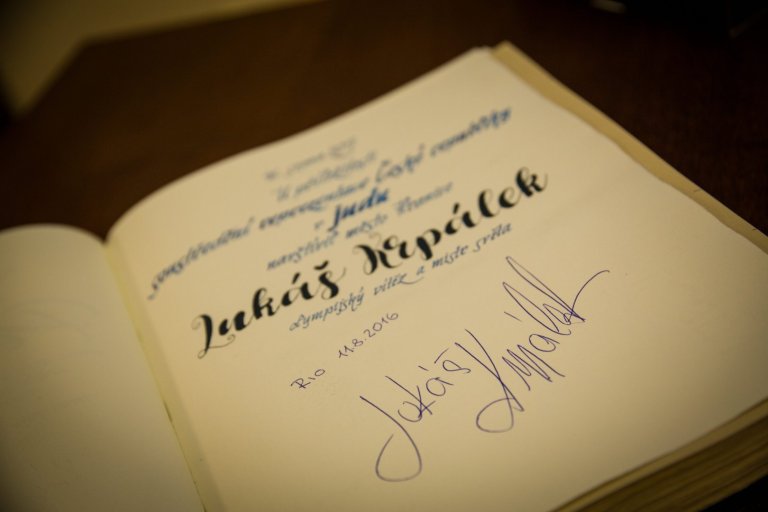 soustředění reprezentace České republiky
v judu
navštívil město
Lukáš Krpálek
olympijský vítěz a mistr světa
Rio 11.8.2016
Lukáš Krpálek